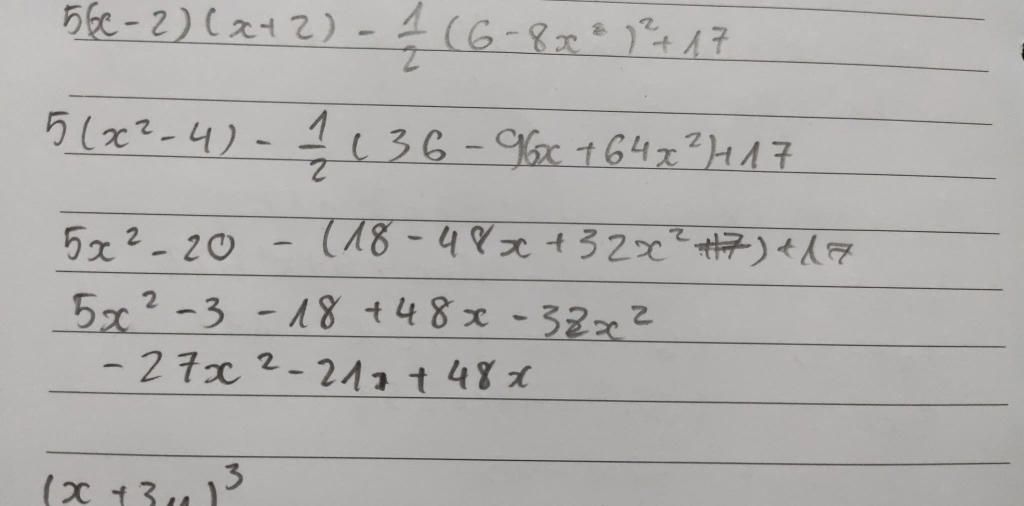 5(x - 2)(x + 2) - 1/2 (6 - 8x )² + 17
5(x² - 4) - 1/2 (36 - 96x + 64x²) + 17
5x² - 20 - (18 - 48x + 32x² +17) + 17
5x² - 3 - 18 + 48x - 32x²
- 27x² - 21 + 48x
(x + 3y)³